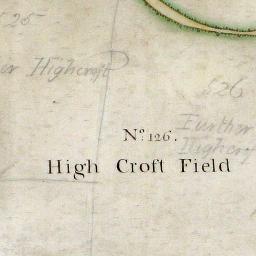 525
er Highcroft
526
Further
Highcr
No. 126.
High Croft Field